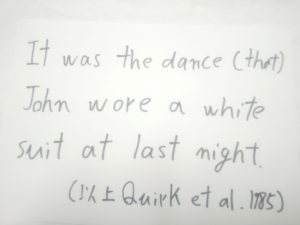 It was the dance (that)
John wore a white
suit at last night.
(以上 Quirk et al. 1985)